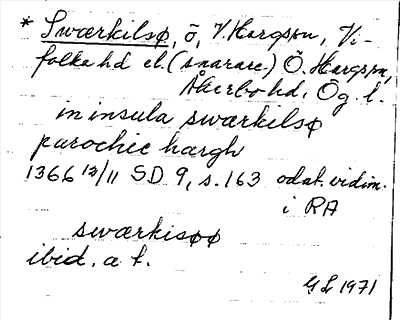 * Swærkilsø, ö, V. Hargsøn, Vi-
folka hd el. (snarare) Ö. Hargsøn,
Åkerbo hd, Ög. l.
in insula swærkilsø
parochie hargh
1366 12/11 SD 9, s. 163 odat. vidim.
i RA
swærkisøø
ibid. a t.
GL 1971